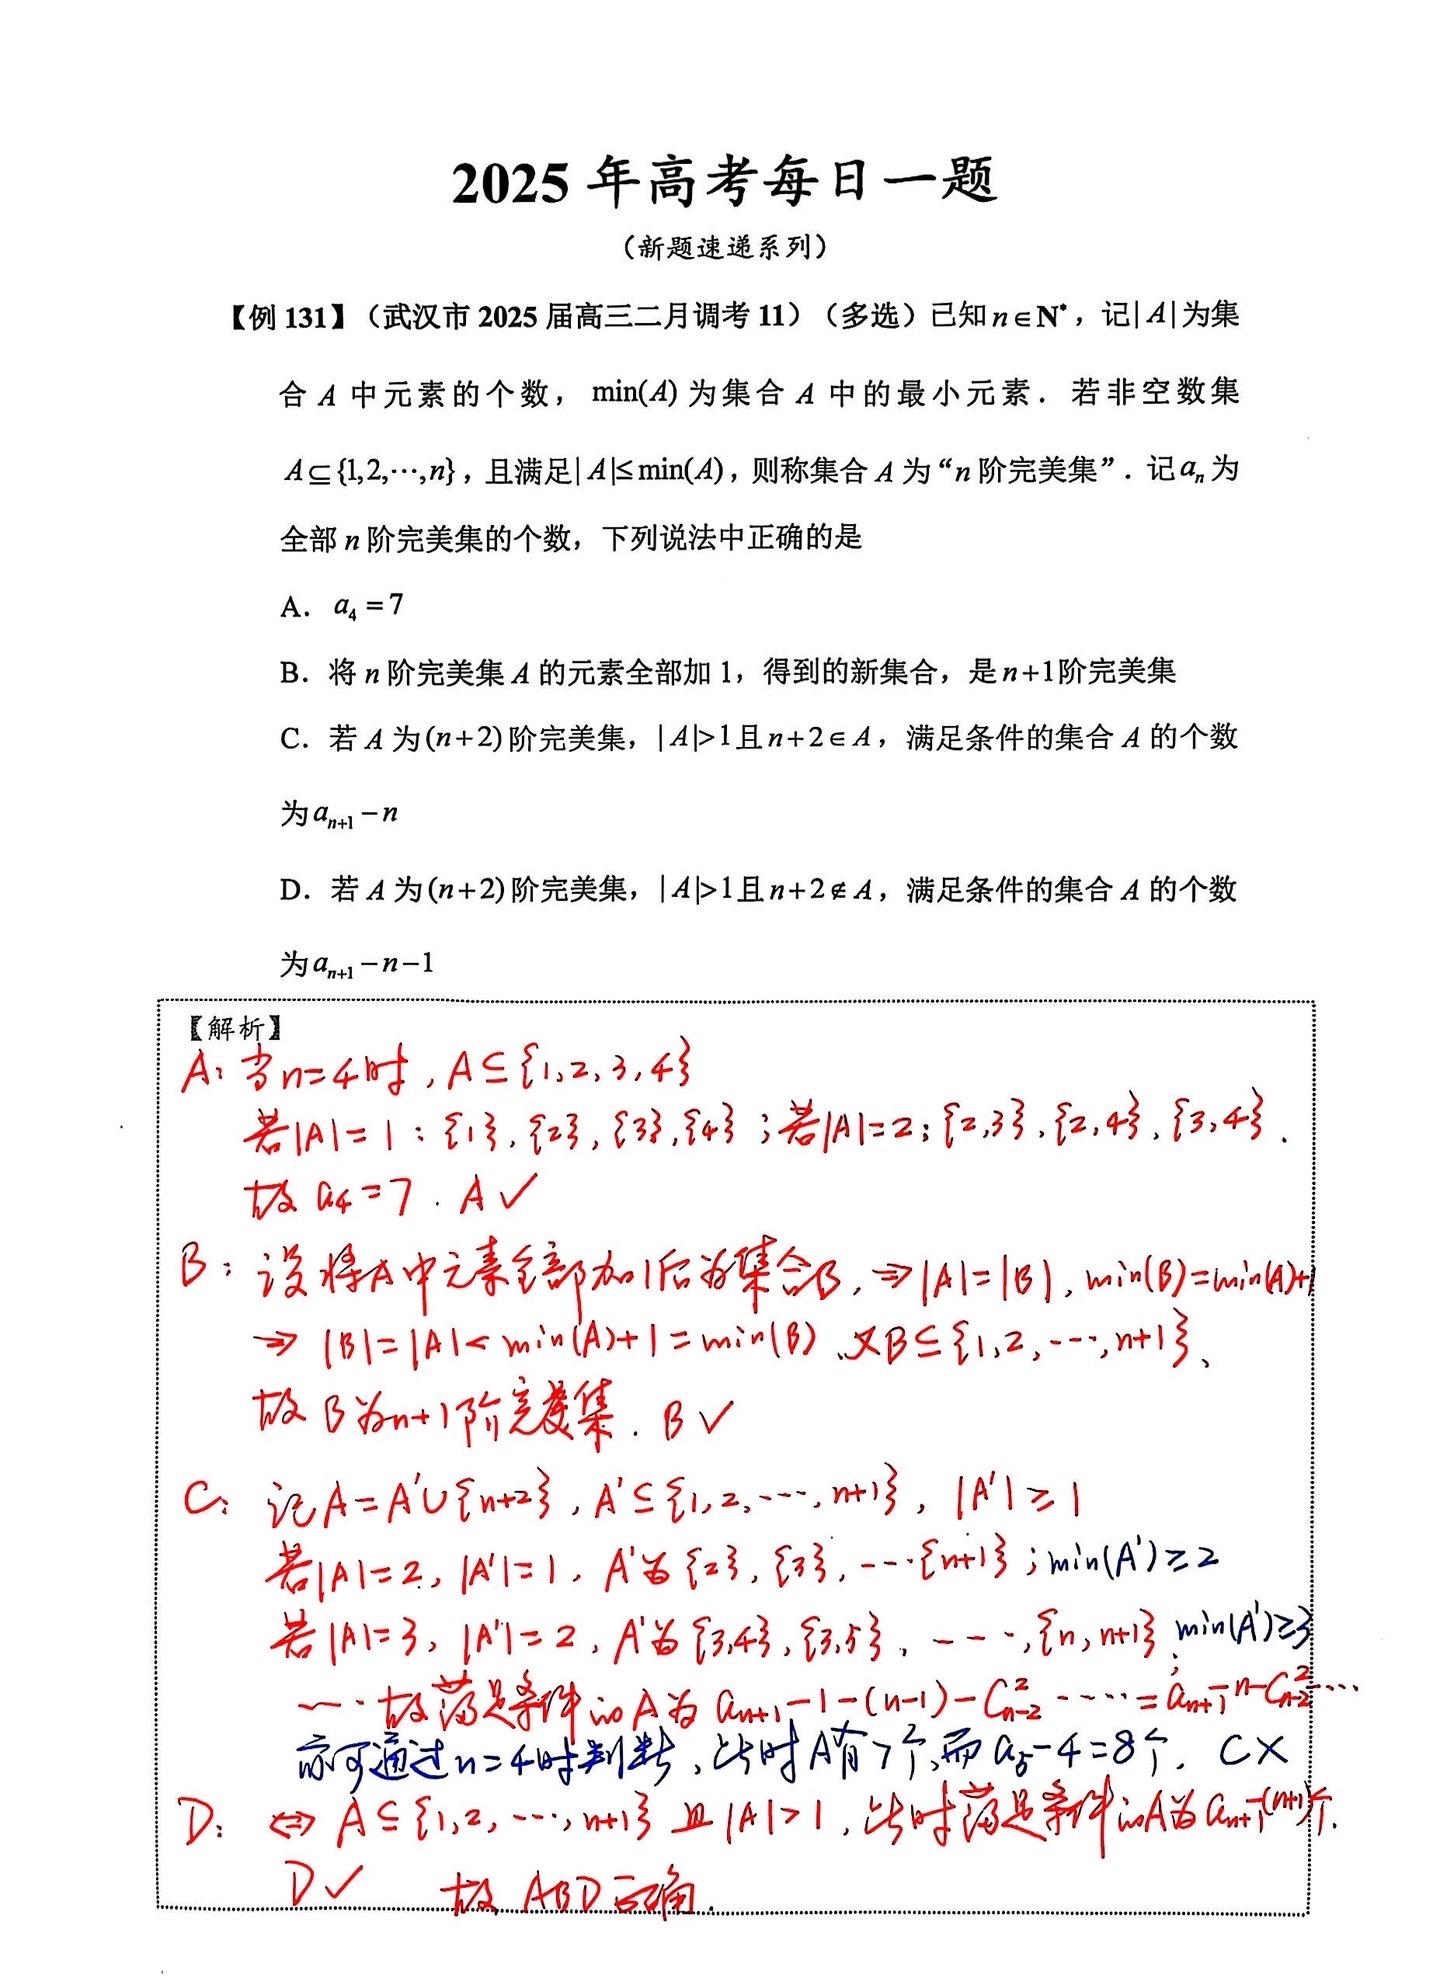 2025 年高考每日一题
（新题速递系列）
【例 131】（武汉市 2025 届高三二月调考 11）（多选）已知 n∈N*，记| A |为集
合 A 中元素的个数，min(A) 为集合 A 中的最小元素．若非空数集
A⊆{1,2,⋯,n}，且满足| A |≤min(A)，则称集合 A 为“n 阶完美集”．记 aₙ 为
全部 n 阶完美集的个数，下列说法中正确的是
A．a₄ = 7
B．将 n 阶完美集 A 的元素全部加 1，得到的新集合，是 n+1 阶完美集
C．若 A 为(n+2)阶完美集，| A |>1且 n+2∈A，满足条件的集合 A 的个数
为 aₙ₊₁ − n
D．若 A 为(n+2)阶完美集，| A |>1且 n+2∉A，满足条件的集合 A 的个数
为 aₙ₊₁ − n − 1
【解析】
A: 当n=4时, A⊆{1,2,3,4}
若|A|=1: {1}, {2}, {3}, {4}; 若|A|=2: {2,3}, {2,4}, {3,4}.
故 a₄=7. A✓
B: 设将A中元素全部加1后为集合B, ⇒|A|=|B|, min(B)=min(A)+1
⇒ |B|=|A|< min(A)+1=min(B), 又B⊆{1,2,⋯,n+1},
故 B为n+1阶完美集. B✓
C: 记A=A'∪{n+2}, A'⊆{1,2,⋯,n+1}, |A'|≥1
若|A|=2, |A'|=1, A'为 {2}, {3}, ⋯{n+1}; min(A')≥2
若|A|=3, |A'|=2, A'为{3,4}, {3,5}, ⋯, {n, n+1}; min(A')≥3
⋯故满足条件的A为 aₙ₊₁−1−(n−1)−C²ₙ₋₂⋯⋯=aₙ₊₁−n−C²ₙ₋₂⋯
亦可通过n=4时判断, 此时A有7个, 而a₅−4=8个. C×
D: ⇔ A⊆{1,2,⋯,n+1} 且 |A|>1, 此时满足条件的A为aₙ₊₁−(n+1)个.
D✓ 故 ABD正确.